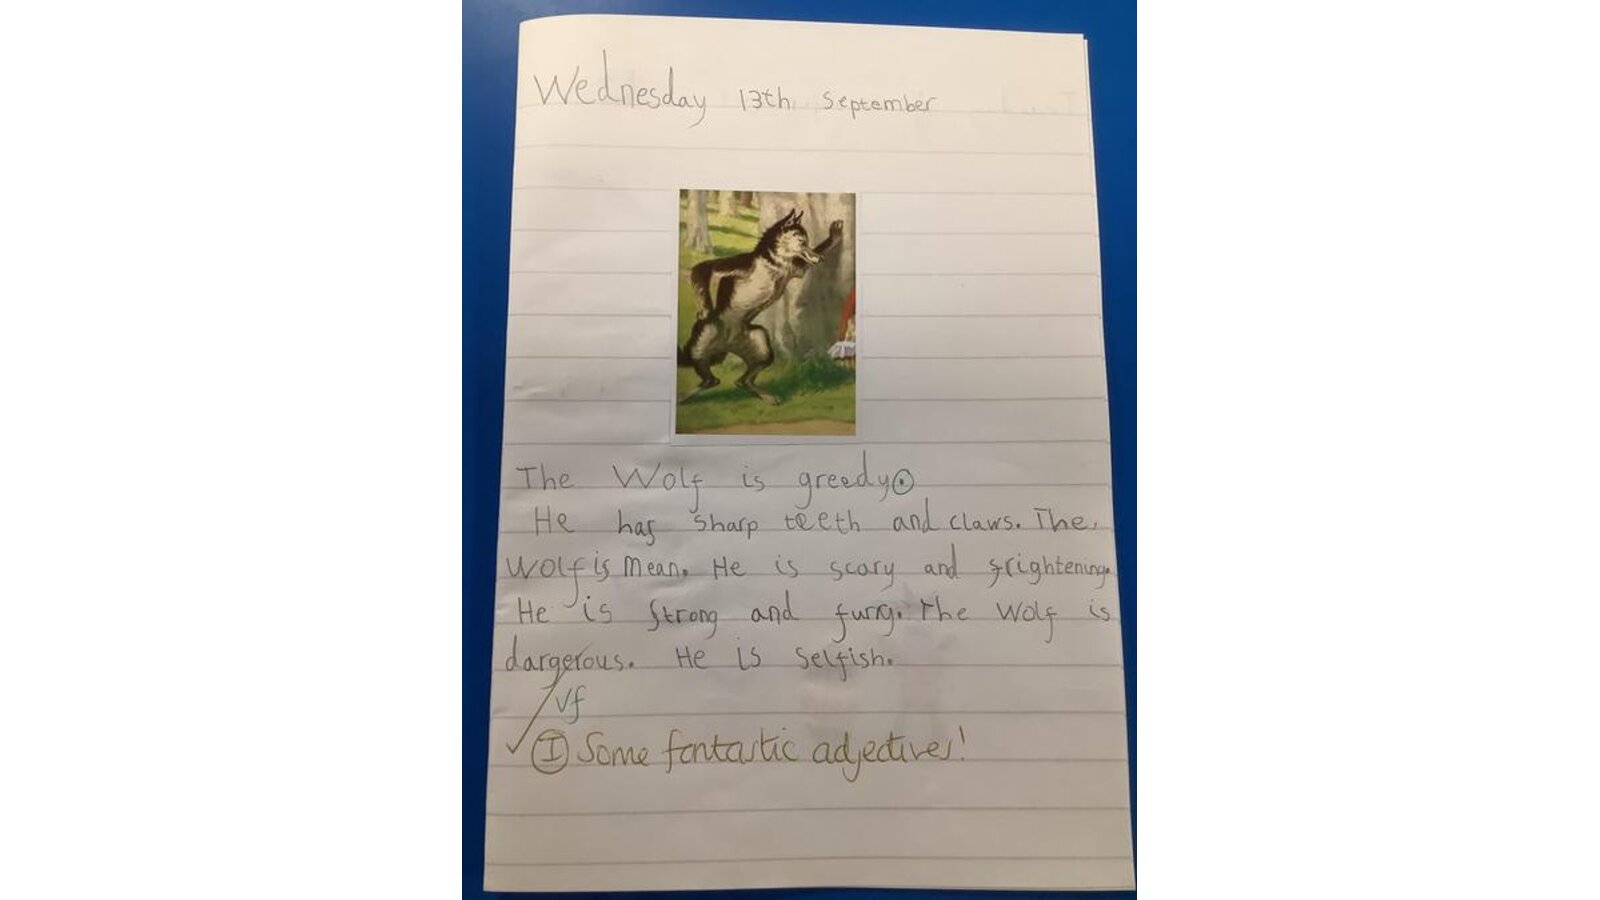 Wednesday 13th September
The Wolf is greedy.
He has sharp teeth and claws. The
Wolf is mean. He is scary and frightening.
He is strong and furry. The Wolf is
dargerous. He is selfish.
vf
I Some fantastic adjectives!